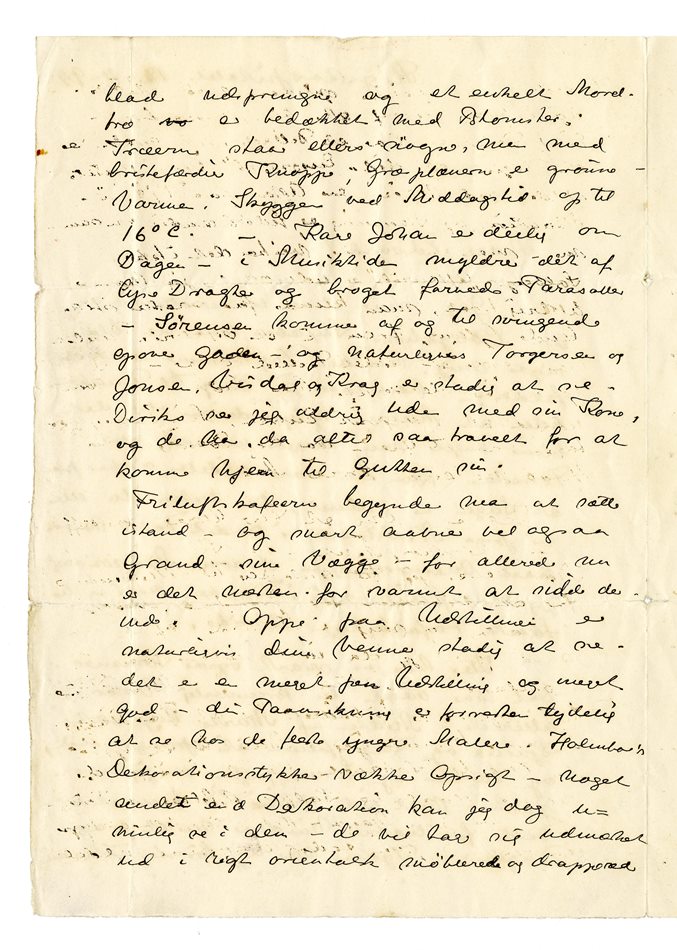 blad udsprungne og et enkelt Mord-
træ er bedækket med Blomster.
Træerne staar ellers nøgne, men med
bristefærdie Knopper, Græsplænern er grønne –
Varmen i Skyggen ved Middagstid op til
16° C. – Karl Johan er deilig om
Dagen – i Musiktiden myldre det af
lyse Dragter og broget farvede Parasoller
– Sørensen komme af og til svingende
opove gaden – og naturligvis Torgersen og
Jonsen. Visdal og Krag er stadig at se –
Diriks se jeg aldrig ude med sin Kone,
og de har da altid saa travelt for at
komme hjem til Gutten sin.
Friluftskafeern begynde nu at sætte
istand – og snart aabne vel ogsaa
Grand sine Vægge – for allerede nu
e det næsten for varmt at sidde de
inde. Oppe paa Udstillinge er
naturligvis dine Venne stadig at se –
det e en meget pæn Udstilling og meget
god – din Paavirkning e forresten tydelig
at se hos de fleste yngre Malere. Holmboes
Dekorationsstykke vække Opsigt – noget
andet end Dekoration kan jeg dog u=
mulig se i dem – de vil tage sig udmærket
ud i rigt orientalsk møblerede og drapperede